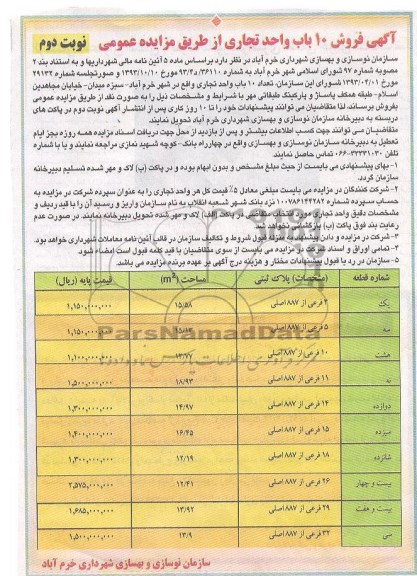 آگهی فروش ۱۰ باب واحد تجاری از طریق مزایده عمومی نوبت دوم
سازمان نوسازی و بهسازی شهرداری خرم آباد در نظر دارد براساس ماده ۵ آئین نامه مالی شهرداریها و به استناد بند ۲
مصوبه شماره ۹۷ شورای اسلامی شهر خرم آباد به شماره ۳۶۱۱۰/د۹۳/۴ مورخ ۱۳۹۳/۱۰/۱۰ و صورتجلسه شماره ۲۹۱۳۲
مورخ ۱۳۹۳/۰۴/۰۱ شورای این سازمان، تعداد ۱۰ باب واحد تجاری واقع در شهر خرم آباد- سبزه میدان- خیابان مجاهدین
اسلام- طبقه همکف پاساژ و پارکینگ طبقاتی مهر با شرایط و مشخصات ذیل را به صورت نقد از طریق مزایده عمومی
بفروش برساند، لذا متقاضیان می توانند پیشنهادات خود را تا ۱۰ روز کاری پس از انتشار آگهی نوبت دوم در پاکت های
دربسته به دبیرخانه سازمان نوسازی و بهسازی شهرداری خرم آباد تحویل نمایند.
متقاضیان می توانند جهت کسب اطلاعات بیشتر و پس از بازدید از محل جهت دریافت اسناد مزایده همه روزه بجز ایام
تعطیل به دبیرخانه سازمان نوسازی و بهسازی واقع در چهارراه بانک- کوچه شهید نمازی مراجعه نمایند و یا با شماره
تلفن ۳۳۳۳۱۰۳۰-۰۶۶ تماس حاصل نمایند.
۱- بهای پیشنهادی می بایست از حیث مبلغ مشخص و بدون ابهام بوده و در پاکت (ب) لاک و مهر شده تسلیم دبیرخانه
سازمان گردد.
۲- شرکت کنندگان در مزایده می بایست مبلغی معادل ۵٪ قیمت کل هر واحد تجاری را به عنوان سپرده شرکت در مزایده به
حساب سپرده شماره نزد بانک شهر شعبه انقلاب به نام سازمان واریز و رسید آن را با قید ردیف و
مشخصات دقیق واحد تجاری مورد انتخاب متقاضی در پاکت (الف) لاک و مهر شده تحویل دبیرخانه نمایند. در صورت عدم
رعایت بند فوق پاکت (ب) بازگشایی نخواهد شد
۳- شرکت در مزایده و دادن پیشنهاد به منزله قبول شروط و تکالیف سازمان در قالب آئین نامه معاملات شهرداری خواهد بود.
۴- تمامی اوراق و اسناد شرکت در مزایده می بایست از سوی متقاضیان با قید کلمه قبول است امضاء شود.
۵- سازمان در رد یا قبول پیشنهادات مختار و هزینه درج آگهی بر عهده برنده مزایده می باشد.
شماره قطعه (مشخصات) پلاک ثبتی مساحت (m²) قیمت پایه (ریال)
یک ۲ فرعی از ۸۸۷ اصلی ۱۵/۵۸ ۱,۱۵۰,۰۰۰,۰۰۰
سه ۵ فرعی از ۸۸۷ اصلی ۱,۱۵۰,۰۰۰,۰۰۰
هشت ۱۰ فرعی از ۸۸۷ اصلی ۱۳/۷۷ ۱,۱۰۰,۰۰۰,۰۰۰
نه ۱۱ فرعی از ۸۸۷ اصلی ۱۸/۹۳ ۱,۵۰۰,۰۰۰,۰۰۰
دوازده ۱۴ فرعی از ۸۸۷ اصلی ۱۴/۹۷ ۱,۳۰۰,۰۰۰,۰۰۰
سیزده ۱۵ فرعی از ۸۸۷ اصلی ۱۶/۴۵ ۱,۴۰۰,۰۰۰,۰۰۰
شانزده ۱۸ فرعی از ۸۸۷ اصلی ۱۲/۱۹ ۱,۳۰۰,۰۰۰,۰۰۰
بیست و چهار ۲۶ فرعی از ۸۸۷ اصلی ۱۲/۴۱ ۲,۵۷۵,۰۰۰,۰۰۰
بیست و هفت ۲۹ فرعی از ۸۸۷ اصلی ۱۳/۹۲ ۱,۶۸۵,۰۰۰,۰۰۰
سی ۳۲ فرعی از ۸۸۷ اصلی ۱۳/۹ ۱,۵۰۰,۰۰۰,۰۰۰
سازمان نوسازی و بهسازی شهرداری خرم آباد
ParsNamadData